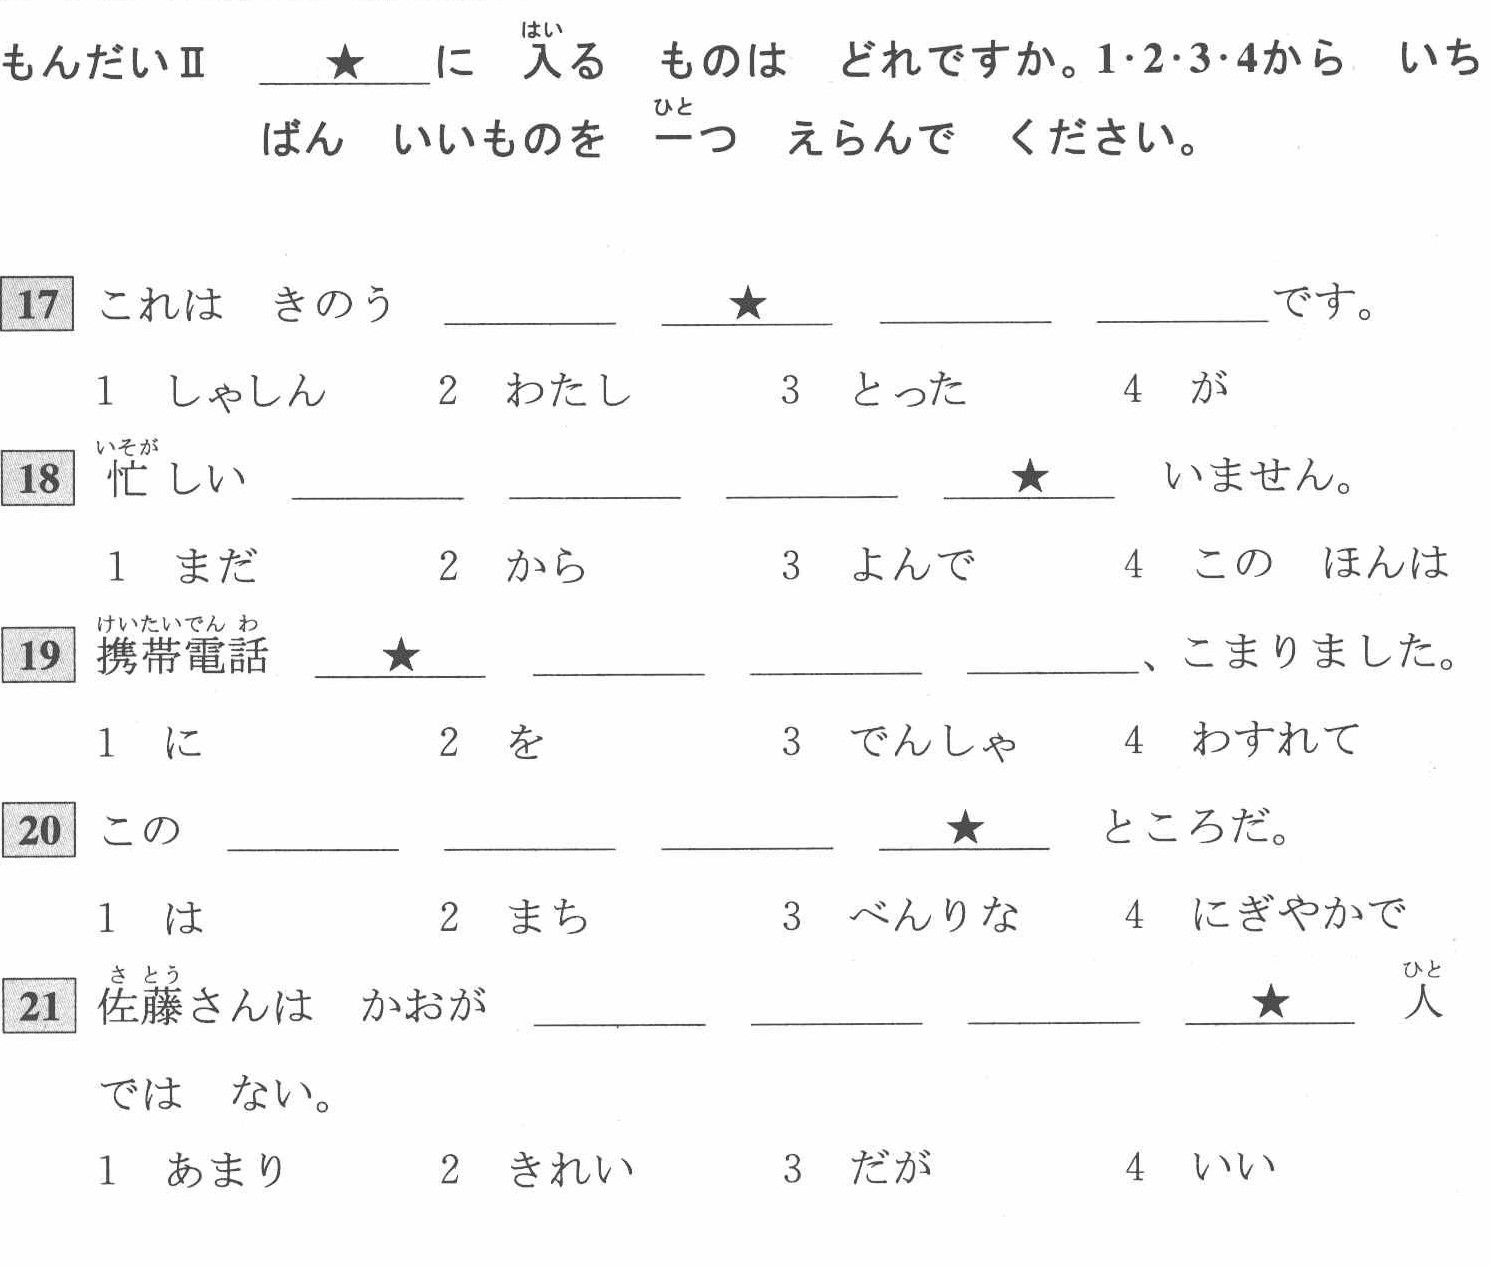 もんだいⅡ ★に 入る ものは どれですか。1·2·3·4から いち
ばん いいものを 一つ えらんで ください。
17 これは きのう ＿＿＿ ＿★＿ ＿＿＿ ＿＿＿です。
1 しゃしん 2 わたし 3 とった 4 が
18 忙しい ＿＿＿ ＿＿＿ ＿＿＿ ＿★＿ いません。
1 まだ 2 から 3 よんで 4 この ほんは
19 携帯電話 ＿★＿ ＿＿＿ ＿＿＿ ＿＿＿、こまりました。
1 に 2 を 3 でんしゃ 4 わすれて
20 この ＿＿＿ ＿＿＿ ＿＿＿ ＿★＿ ところだ。
1 は 2 まち 3 べんりな 4 にぎやかで
21 佐藤さんは かおが ＿＿＿ ＿＿＿ ＿＿＿ ＿★＿ 人
では ない。
1 あまり 2 きれい 3 だが 4 いい